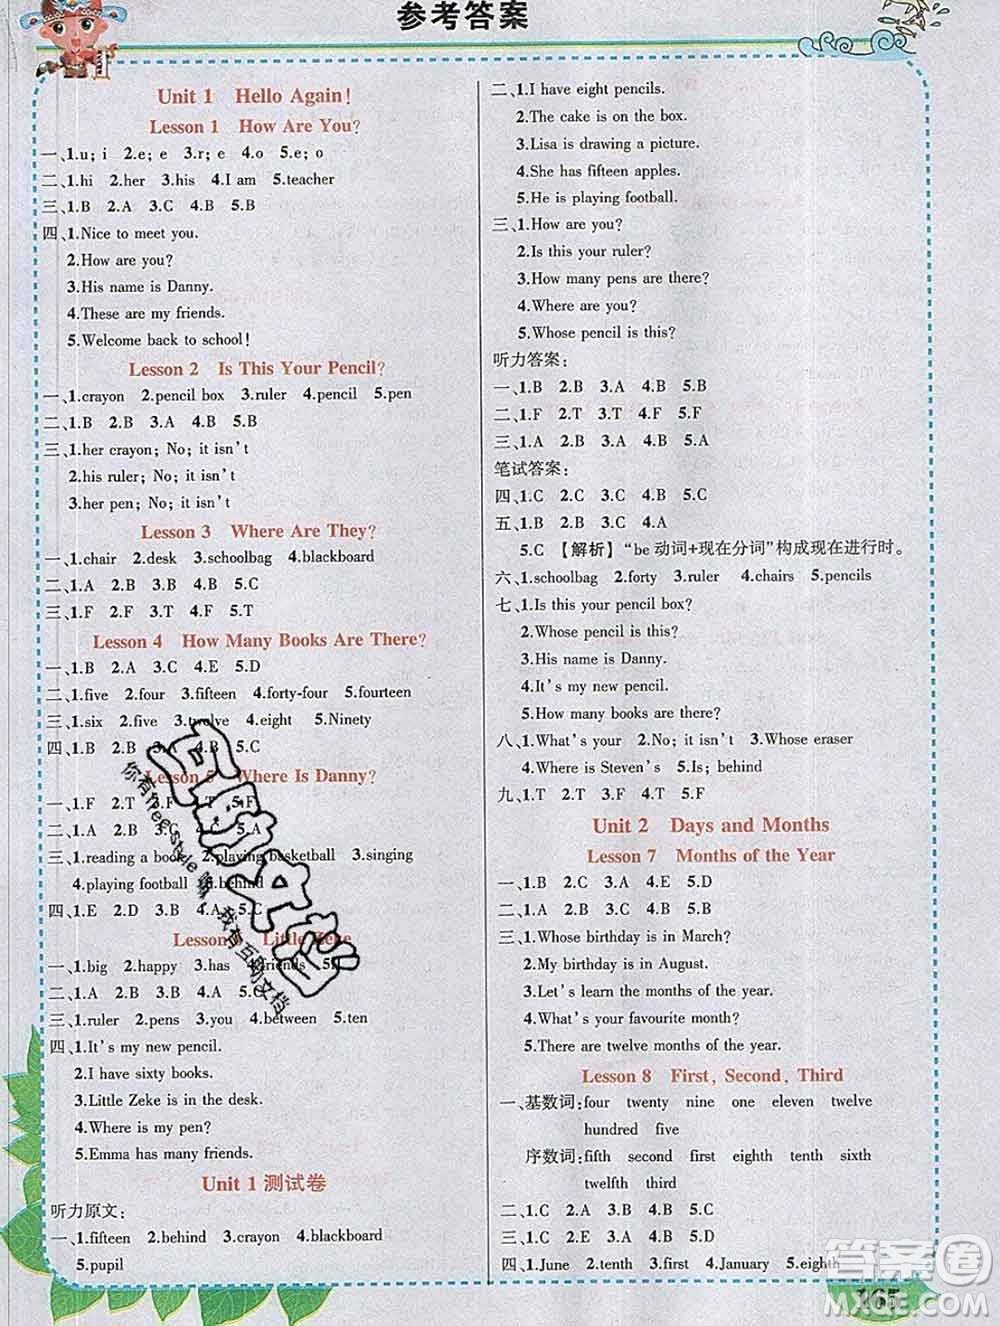 参考答案
Unit 1 Hello Again!
Lesson 1 How Are You?
一、1.u; i 2.e; e 3.r; e 4.o 5.e; o
二、1.hi 2.her 3.his 4.I am 5.teacher
三、1.B 2.A 3.C 4.B 5.B
四、1.Nice to meet you.
2.How are you?
3.His name is Danny.
4.These are my friends.
5.Welcome back to school!
Lesson 2 Is This Your Pencil?
一、1.crayon 2.pencil box 3.ruler 4.pencil 5.pen
二、1.B 2.B 3.A 4.A 5.B
三、1.her crayon; No; it isn't
2.his ruler; No; it isn't
3.her pen; No; it isn't
Lesson 3 Where Are They?
一、1.chair 2.desk 3.schoolbag 4.blackboard
二、1.A 2.B 3.C 4.B 5.C
三、1.F 2.F 3.T 4.F 5.T
Lesson 4 How Many Books Are There?
一、1.B 2.A 3.C 4.E 5.D
二、1.five 2.four 3.fifteen 4.forty-four 5.fourteen
三、1.six 2.five 3.twelve 4.eight 5.Ninety
四、1.B 2.B 3.A 4.B 5.C
Lesson 5 Where Is Danny?
一、1.F 2.T 3.F 4.T 5.F
二、1.A 2.B 3.C 4.C 5.A
三、1.reading a book 2.playing basketball 3.singing
4.playing football 5.behind
四、1.E 2.D 3.B 4.A 5.C
Lesson Little Zeke
一、1.big 2.happy 3.has 4.friends
二、1.A 2.B 3.C 4.A 5.B
三、1.ruler 2.pens 3.you 4.between 5.ten
四、1.It's my new pencil.
2.I have sixty books.
3.Little Zeke is in the desk.
4.Where is my pen?
5.Emma has many friends.
Unit 1 测试卷
听力原文:
一、1.fifteen 2.behind 3.crayon 4.blackboard
5.pupil
二、1.I have eight pencils.
2.The cake is on the box.
3.Lisa is drawing a picture.
4.She has fifteen apples.
5.He is playing football.
三、1.How are you?
2.Is this your ruler?
3.How many pens are there?
4.Where are you?
5.Whose pencil is this?
听力答案:
一、1.B 2.B 3.A 4.B 5.B
二、1.F 2.T 3.T 4.F 5.T
三、1.A 2.B 3.A 4.B 5.A
笔试答案:
四、1.C 2.C 3.C 4.B 5.C
五、1.C 2.B 3.C 4.A
5.C 【解析】“be动词+现在分词”构成现在进行时。
六、1.schoolbag 2.forty 3.ruler 4.chairs 5.pencils
七、1.Is this your pencil box?
2.Whose pencil is this?
3.His name is Danny.
4.It's my new pencil.
5.How many books are there?
八、1.What's your 2.No; it isn't 3.Whose eraser
4.Where is Steven's 5.Is; behind
九、1.T 2.F 3.T 4.T 5.F
Unit 2 Days and Months
Lesson 7 Months of the Year
一、1.B 2.C 3.A 4.E 5.D
二、1.B 2.C 3.A 4.B 5.C
三、1.Whose birthday is in March?
2.My birthday is in August.
3.Let's learn the months of the year.
4.What's your favourite month?
5.There are twelve months of the year.
Lesson 8 First, Second, Third
一、基数词:four twenty nine one eleven twelve
hundred five
序数词:fifth second first eighth tenth sixth
twelfth third
二、1.C 2.A 3.B 4.B 5.C
三、1.C 2.C 3.A 4.B 5.C
四、1.June 2.tenth 3.first 4.January 5.eighth
165
你有freestyle嘛 我有互助文档
答案圈
MXQE.COM